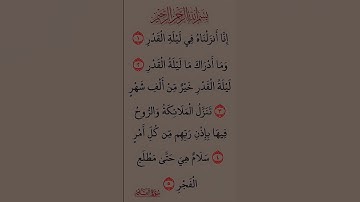 بسم الله الرحمن الرحيم
إِنَّا أَنزَلْنَاهُ فِي لَيْلَةِ الْقَدْرِ ١
وَمَا أَدْرَاكَ مَا لَيْلَةُ الْقَدْرِ ٢
لَيْلَةُ الْقَدْرِ خَيْرٌ مِّنْ أَلْفِ شَهْرٍ
٣ تَنَزَّلُ الْمَلَائِكَةُ وَالرُّوحُ
فِيهَا بِإِذْنِ رَبِّهِم مِّن كُلِّ أَمْرٍ
٤ سَلَامٌ هِيَ حَتَّىٰ مَطْلَعِ
الْفَجْرِ ٥